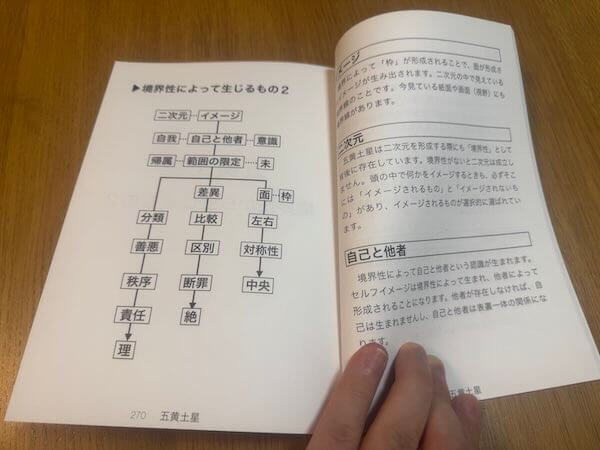 ▶境界性によって生じるもの2
二次元 イメージ
自我 自己と他者 意識
帰属 範囲の限定 未
差異 面 枠
分類 比較 左右
善悪 区別 対称性
秩序 断罪 中央
責任 絶
理
270 五黄土星
メージ
によって「枠」が形成されることで、面が形成さ
イメージが生み出されます。二次元の中で見えている
線のことです。今見ている紙面や画面（視野）にも
があります。
二次元
五黄土星は二次元を形成する際にも「境界性」として
背後に存在しています。境界性がないと二次元は成立し
ません。頭の中で何かをイメージするときも、必ずそこ
には「イメージされるもの」と「イメージされないも
の」があり、イメージされるものが選択的に選ばれてい
ます。
自己と他者
境界性によって自己と他者という認識が生まれます。
セルフイメージは境界性によって生まれ、他者によって
形成されることになります。他者が存在しなければ、自
己は生まれませんし、自己と他者は表裏一体の関係にな
ります。
五黄土星